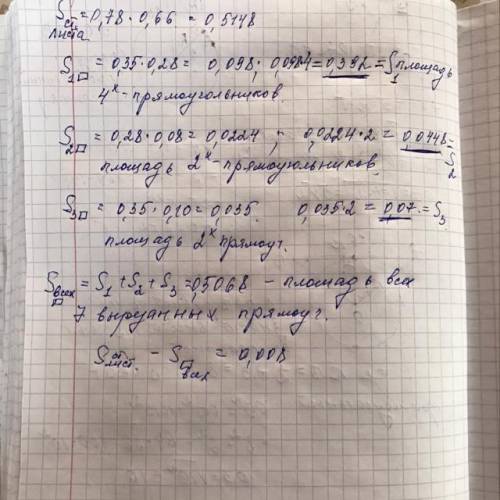 Sст = 0,78 · 0,66 = 0,5148
листа
S1□ = 0,35 · 0,28 = 0,098; 0,098·4 = 0,392 = S1 площадь
4х-прямоугольников.
S2□ = 0,28 · 0,08 = 0,0224 ; 0,0224·2 = 0,0448 = S2
площадь 2х-прямоугольников.
S3□ = 0,35 · 0,10 = 0,035. 0,035·2 = 0,07. = S3
площадь 2х прямоуг.
Sвсех□ = S1 + S2 + S3 = 0,5068 - площадь всех
7 вырезанных прямоуг.
Sст.лист. - S□всех = 0,008